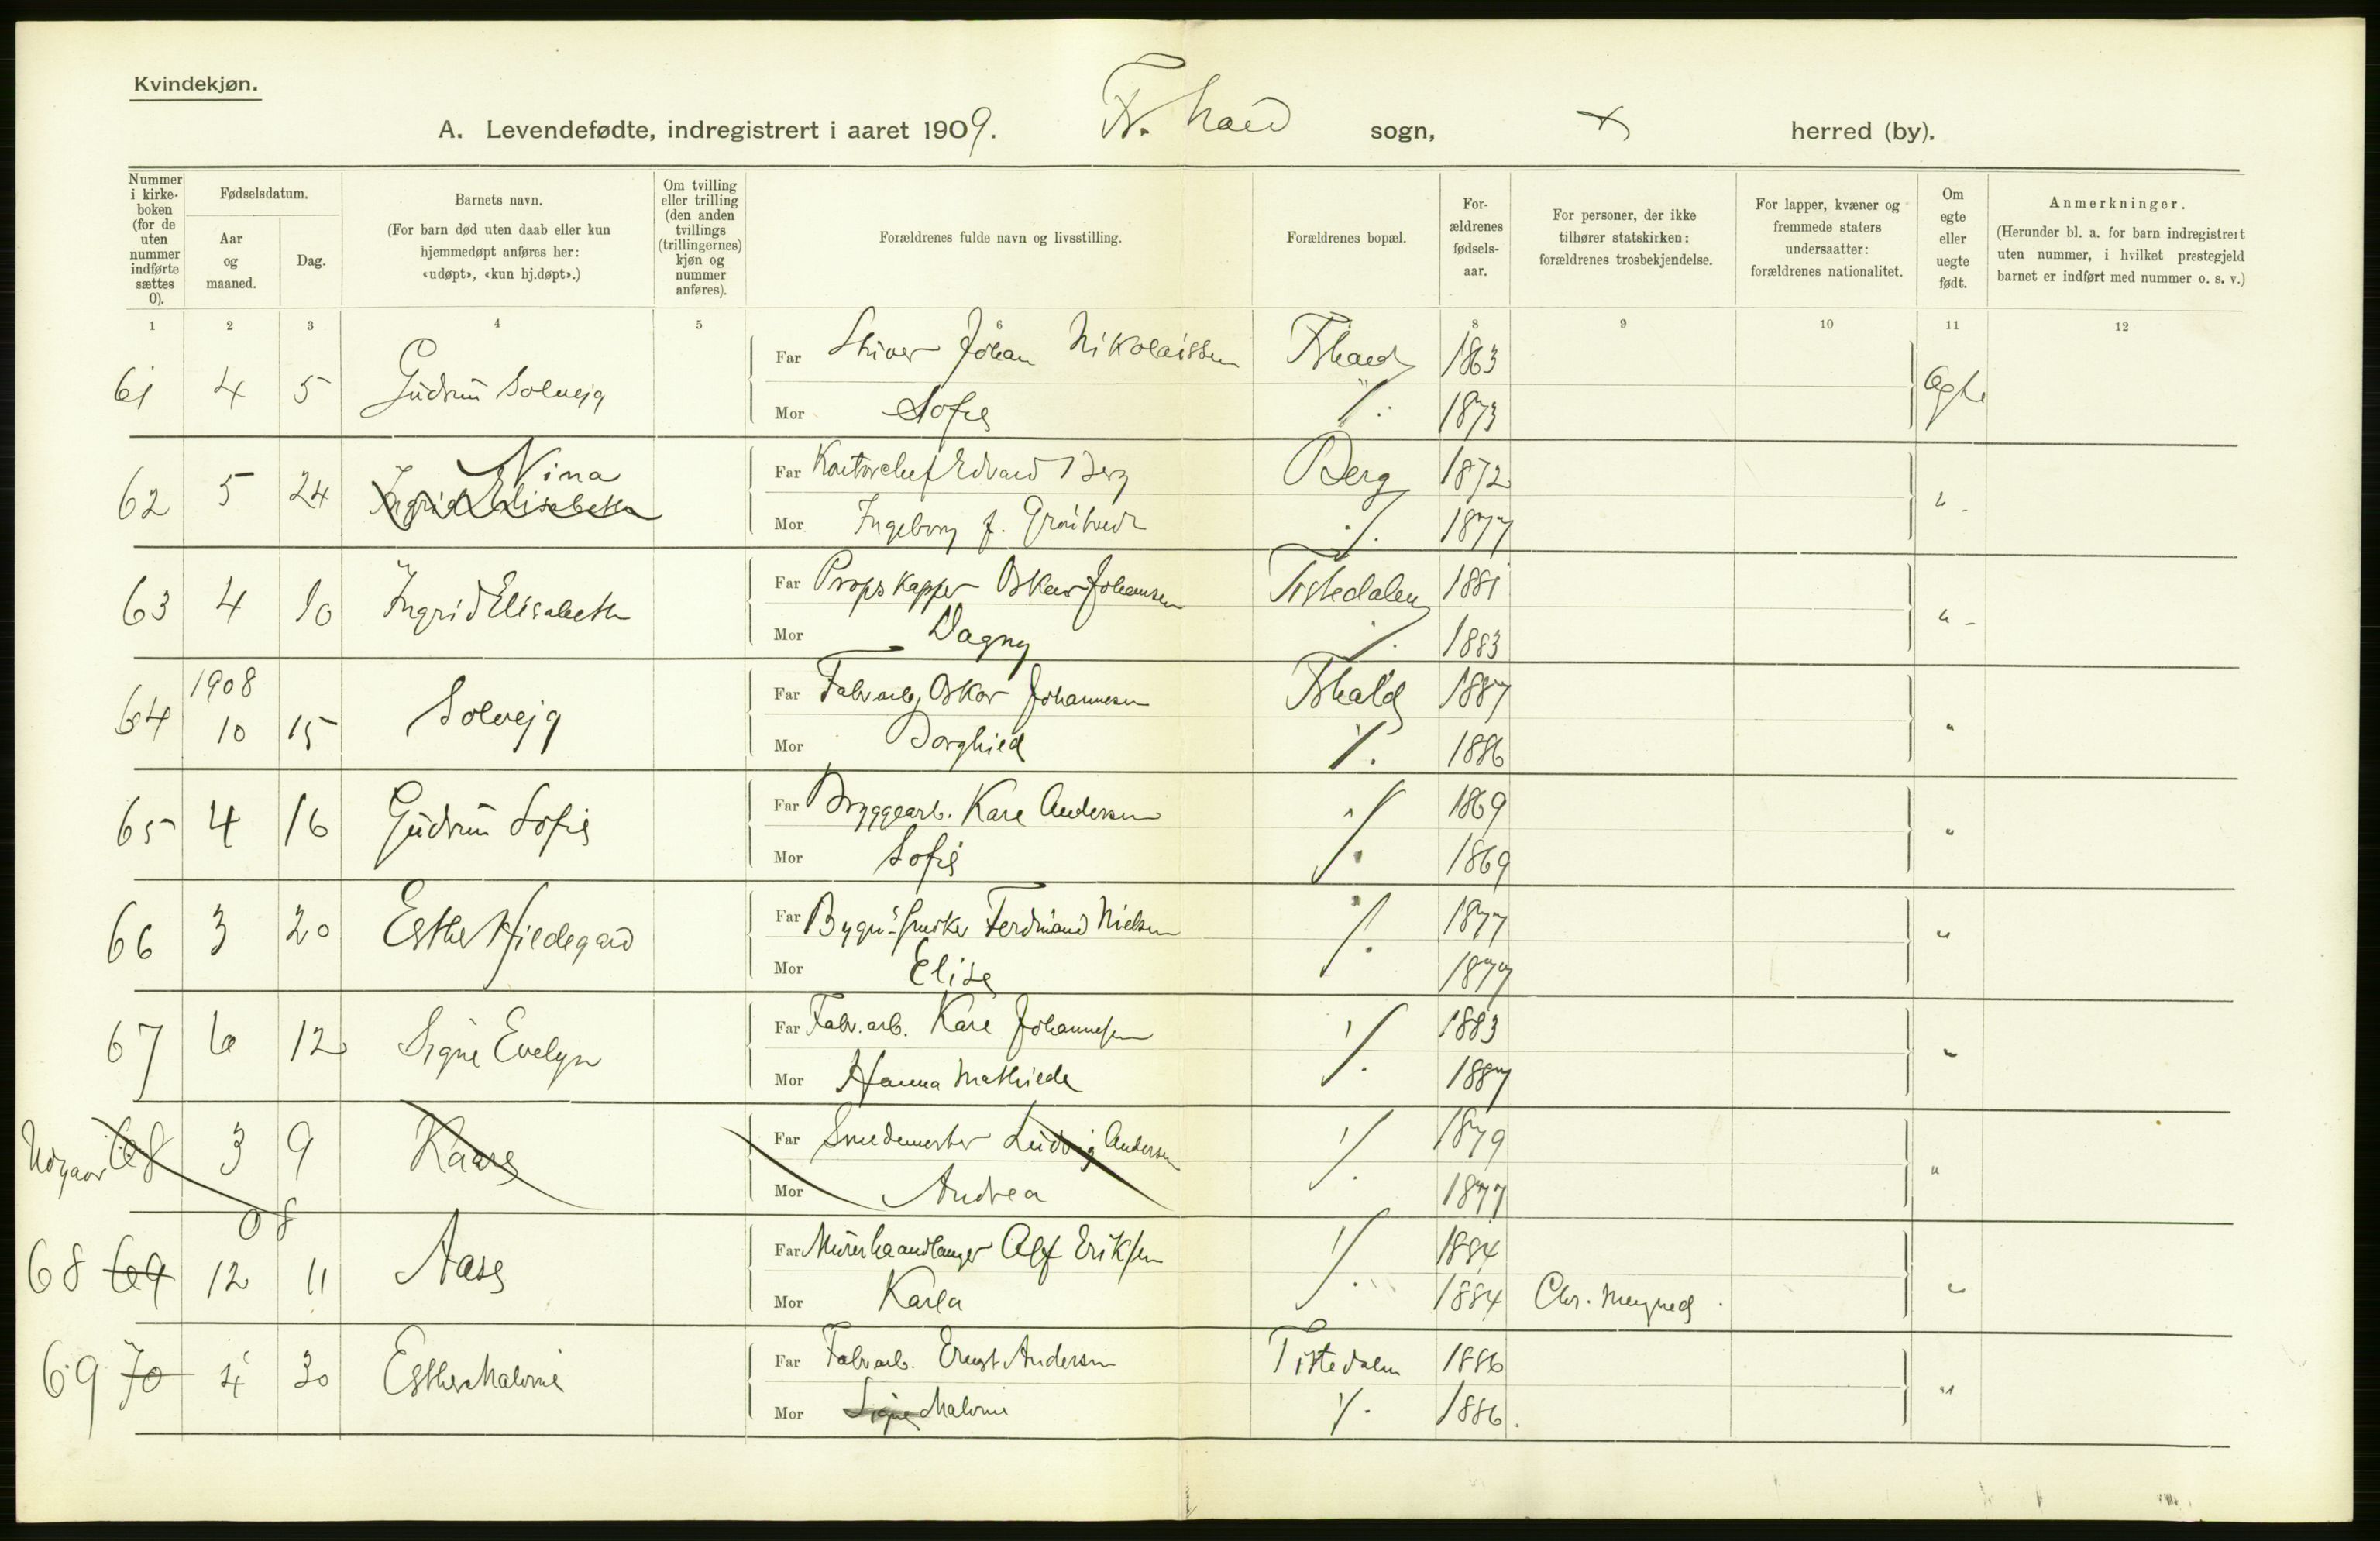 Kvindekjøn.
A. Levendefødte, indregistrert i aaret 1909. Fr.hald sogn, herred (by).
Nummer i kirkeboken (for de uten nummer indførte sættes 0).
Fødselsdatum.
Aar og maaned.
Dag.
Barnets navn.
(For barn død uten daab eller kun hjemmedøpt anføres her: «udøpt», «kun hj.døpt».)
Om tvilling eller trilling (den anden tvillings (trillingernes) kjøn og nummer anføres).
Forældrenes fulde navn og livsstilling.
Forældrenes bopæl.
Forældrenes fødselsaar.
For personer, der ikke tilhører statskirken: forældrenes trosbekjendelse.
For lapper, kvæner og fremmede staters undersaatter: forældrenes nationalitet.
Om egte eller uegte født.
Anmerkninger.
(Herunder bl. a. for barn indregistrert uten nummer, i hvilket prestegjeld barnet er indført med nummer o. s. v.)
1 2 3 4 5 6 8 9 10 11 12
61 4 5 Gudrun Solveig Far Skriver Johan Nikolaissen Fr.hald 1863 Egte
Mor Sofie 1873
62 5 24 Nina Far Kontorchef Edvard Berg Berg 1872 "
Ingrid Elisabeth
Mor Ingeborg f. 1877
63 4 10 Ingrid Elisabeth Far Propskapper Oskar Johansen Tistedalen 1881 "
Mor Dagny 1883
1908
64 10 15 Solveig Far Fabr.arb. Oskar Johannesen Fr.hald 1887 "
Mor Borghild 1886
65 4 16 Gudrun Sofie Far Bryggearb. Karl Andersen 1869 "
Mor Sofie 1869
66 3 20 Esther Hildegard Far Ferdinand Nielsen 1877 "
Mor Elise 1877
67 6 12 Signe Evelyn Far Fabr.arb. Karl Johannesen 1883 "
Mor Hanna Mathilde 1887
Udgaar 68 3 9 Kaare Far Smedemester Ludvig Andersen 1879 "
Mor Andrea 1877
08
68 69 12 11 Aase Far Murerhaandlanger Alf Eriksen 1884 "
Mor Karla 1884 Chr. Menighed
69 70 4 30 Esther Malvine Far Fabr.arb. Ernst Andersen Tistedalen 1886 "
Mor Signe Malvine 1886.